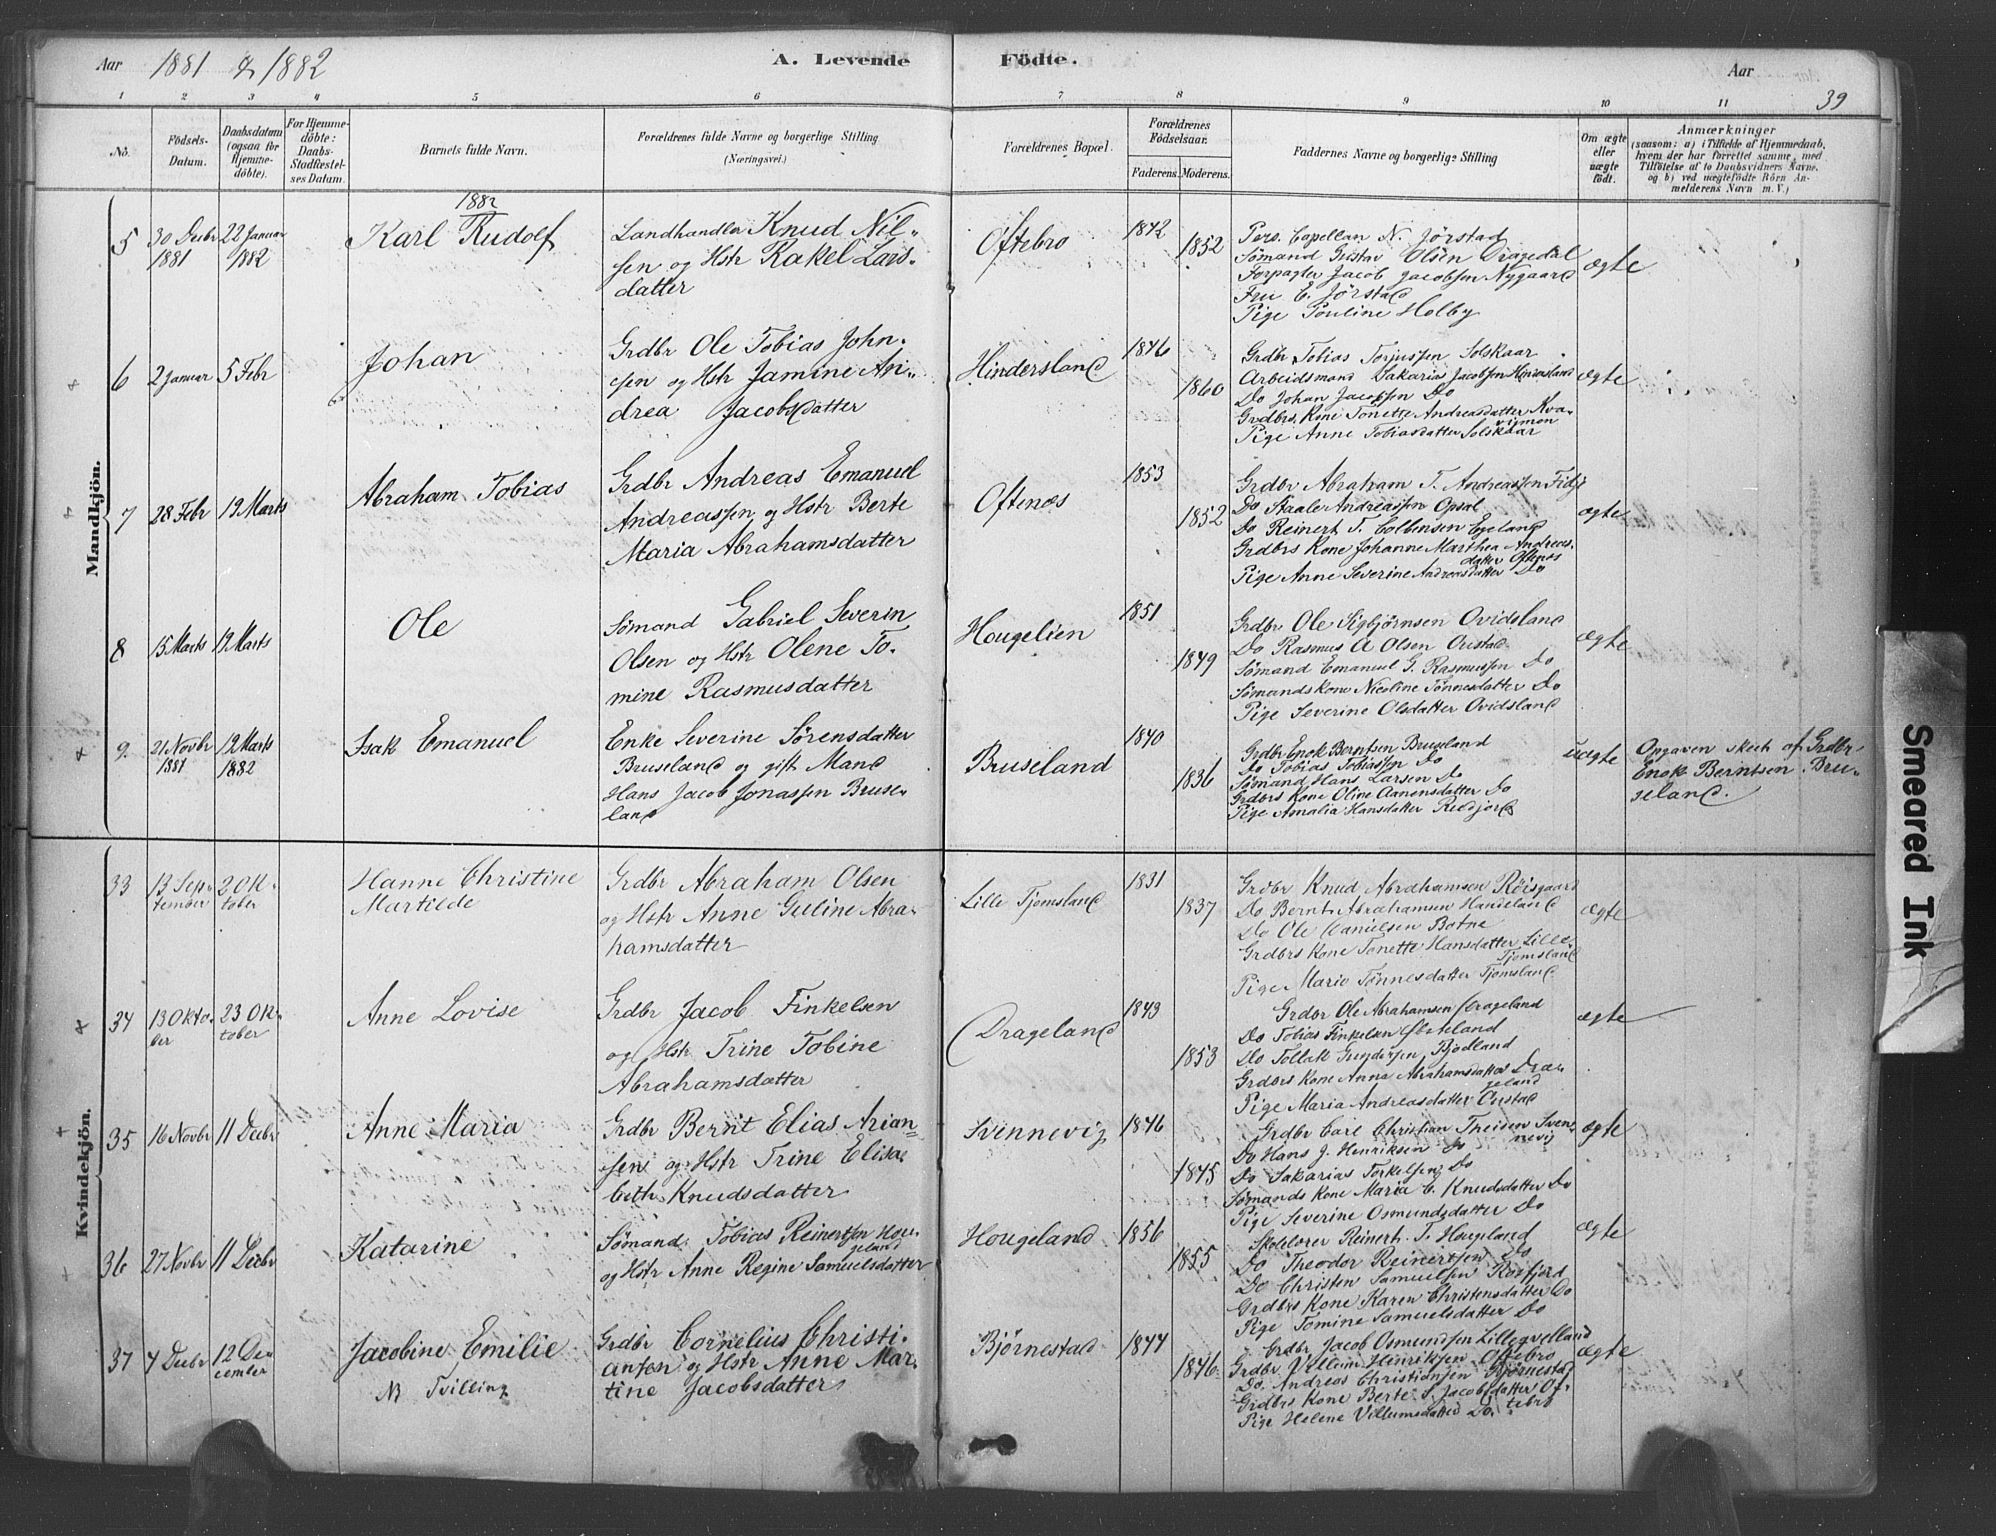 Aar 1881 & 1882 A. Levende Födte. Aar
39
1 2 3 4 5 6 7 8 9 10 11
No. Födsels-Datum. Daabsdatum (ogsaa for Hjemmedöbte). For Hjemmedöbte: Daabs-Stadfæstelses Datum. Barnets fulde Navn. Forældrenes fulde Navne og borgerlige Stilling (Næringsvei.) Forældrenes Bopæl. Forældrenes Födselsaar. Faderens. Moderens. Faddernes Navne og borgerlige Stilling Om ægte eller uægte födt. Anmærkninger
(saasom: a) i Tilfælde af Hjemmedaab,
hvem der har forrettet samme, med
Tilföielse af to Daabsvidners Navne.
og b) ved uægtefödte Börn An-
melderens Navn m. V.)
Mandkjön.
1882
5 30 Decbr 1881 22 Januar 1882 Karl Rudolf
Landhandler Knud Nil-
sen og Hstr Rakel Lars-
datter
Oftebro 1842 1852
Pers. Capellan N. Jørstad
Sømand Gustav Olsen Dragedal
Forpagter Jacob Jacobsen Nygaard
Fru E. Jørstad
Pige Pouline Holby
ægte
6 2 Januar 5 Febr Johan
Grdbr Ole Tobias John-
sen og Hstr Jamine An-
drea Jacobsdatter
Hindersland 1846 1860
Grdbr Tobias Torjussen Solskaar
Arbeidsmand Sakarias Jacobsen Hindersland
Do Johan Jacobsen Do
Grdbrs Kone Tonette Andreasdatter Kva-
vigmon
Pige Anne Tobiasdatter Solskaar
ægte
7 28 Febr 19 Marts Abraham Tobias
Grdbr Andreas Emanuel
Andreassen og Hstr Berte
Maria Abrahamsdatter
Oftenæs 1853 1852
Grdbr Abraham T. Andreassen Fidje
Do Staale Andreassen Opsal
Do Reinert T. Colbensen Egeland
Grdbrs Kone Johanne Marthea Andreas-
datter Oftenæs
Pige Anne Severine Andreasdatter Do
ægte
8 15 Marts 19 Marts Ole
Sømand Gabriel Severin
Olsen og Hstr Olene To-
mine Rasmusdatter
Hougelien 1851 1849
Grdbr Ole Sigbjørnsen Ovidsland
Do Rasmus A Olsen Ovestad
Sømand Emanuel G. Rasmussen Do
Sømands Kone Nicoline Tønnesdatter Do
Pige Severine Olsdatter Ovidsland
ægte
9. 21 Novbr 1881 12 Marts 1882 Isak Emanuel
Enke Severine Sørensdatter
Bruseland og gift Mand
Hans Jacob Jonassen Bruse-
land
Bruseland 1840 1836
Grdbr Enok Berntsen Bruseland
Do Tobias Tobiassen Do
Sømand Hans Larsen Do
Grdbrs Kone Oline Aanensdatter Do
Pige Amalia Hansdatter
uægte
Opgaven skeet af Grdbr
Enok Berntsen Bru-
seland.
Kvindekjön.
33 13 September 2 Oktober Hanne Christine
Martilde
Grdbr Abraham Olsen
og Hstr Anne Guline Abra-
hamsdatter
Lille Tjomsland 1831 1837
Grdbr Knud Abrahamsen Røisgaard
Do Bernt Abrahamsen Handeland
Do Ole Danielsen Botne
Grdbrs Kone Tonette Hansdatter Lille-
Tjomsland
Pige Marie Tønnesdatter Tjomsland
ægte
34 13 Oktober 23 Oktober Anne Lovise
Grdbr Jacob Finkelsen
og Hstr Trine Tobine
Abrahamsdatter
Drageland 1843 1853
Grdbr Ole Abrahamsen Drageland
Do Tobias Finkelsen
Do Tollak Gundersen Bjodland
Grdbrs Kone Anna Abrahamsdatter Dra-
geland
Pige Maria Andreasdatter
ægte
35 16 Novbr 11 Decbr Anne Maria
Grdbr Bernt Elias Arian-
sen og Hstr Trine Elisa-
beth Knudsdatter
Svennevig 1846 1845
Grdbr Carl Christian Theisen Sven-
nevig
Do Hans J. Henriksen Do
Do Sakarias Torkelsen Do
Sømands Kone Maria C. Knudsdatter Do
Pige Severine Osmundsdatter Do
ægte
36 27 Novbr 11 Decbr Katarine
Sømand Tobias Reinertsen Hou-
geland
og Hstr Anne Regine Samuelsdatter
Hougeland 1856 1855
Skolelærer Reinert T. Hougeland
Do Theodor Reinertsen Do
Do Christen Samuelsen Rosfjord
Grdbrs Kone Karen Christensdatter Do
Pige Tomine Samuelsdatter Do
ægte
37 4 Decbr 12 December Jacobine Emilie
NB Tvilling
Grdbr Cornelius Christi-
ansen og Hstr Anne Mar-
tine Jacobsdatter
Bjørnestad 1844 1846
Grdbr Jacob Osmundsen Lillegvelland
Grdbr Villum Henriksen Oftebro
Do Andreas Christiansen Bjørnestad
Grdbrs Kone Berte S. Jacobsdatter Of-
tebro
Pige Helene Villumsdatter Do
ægte
Smeared Ink